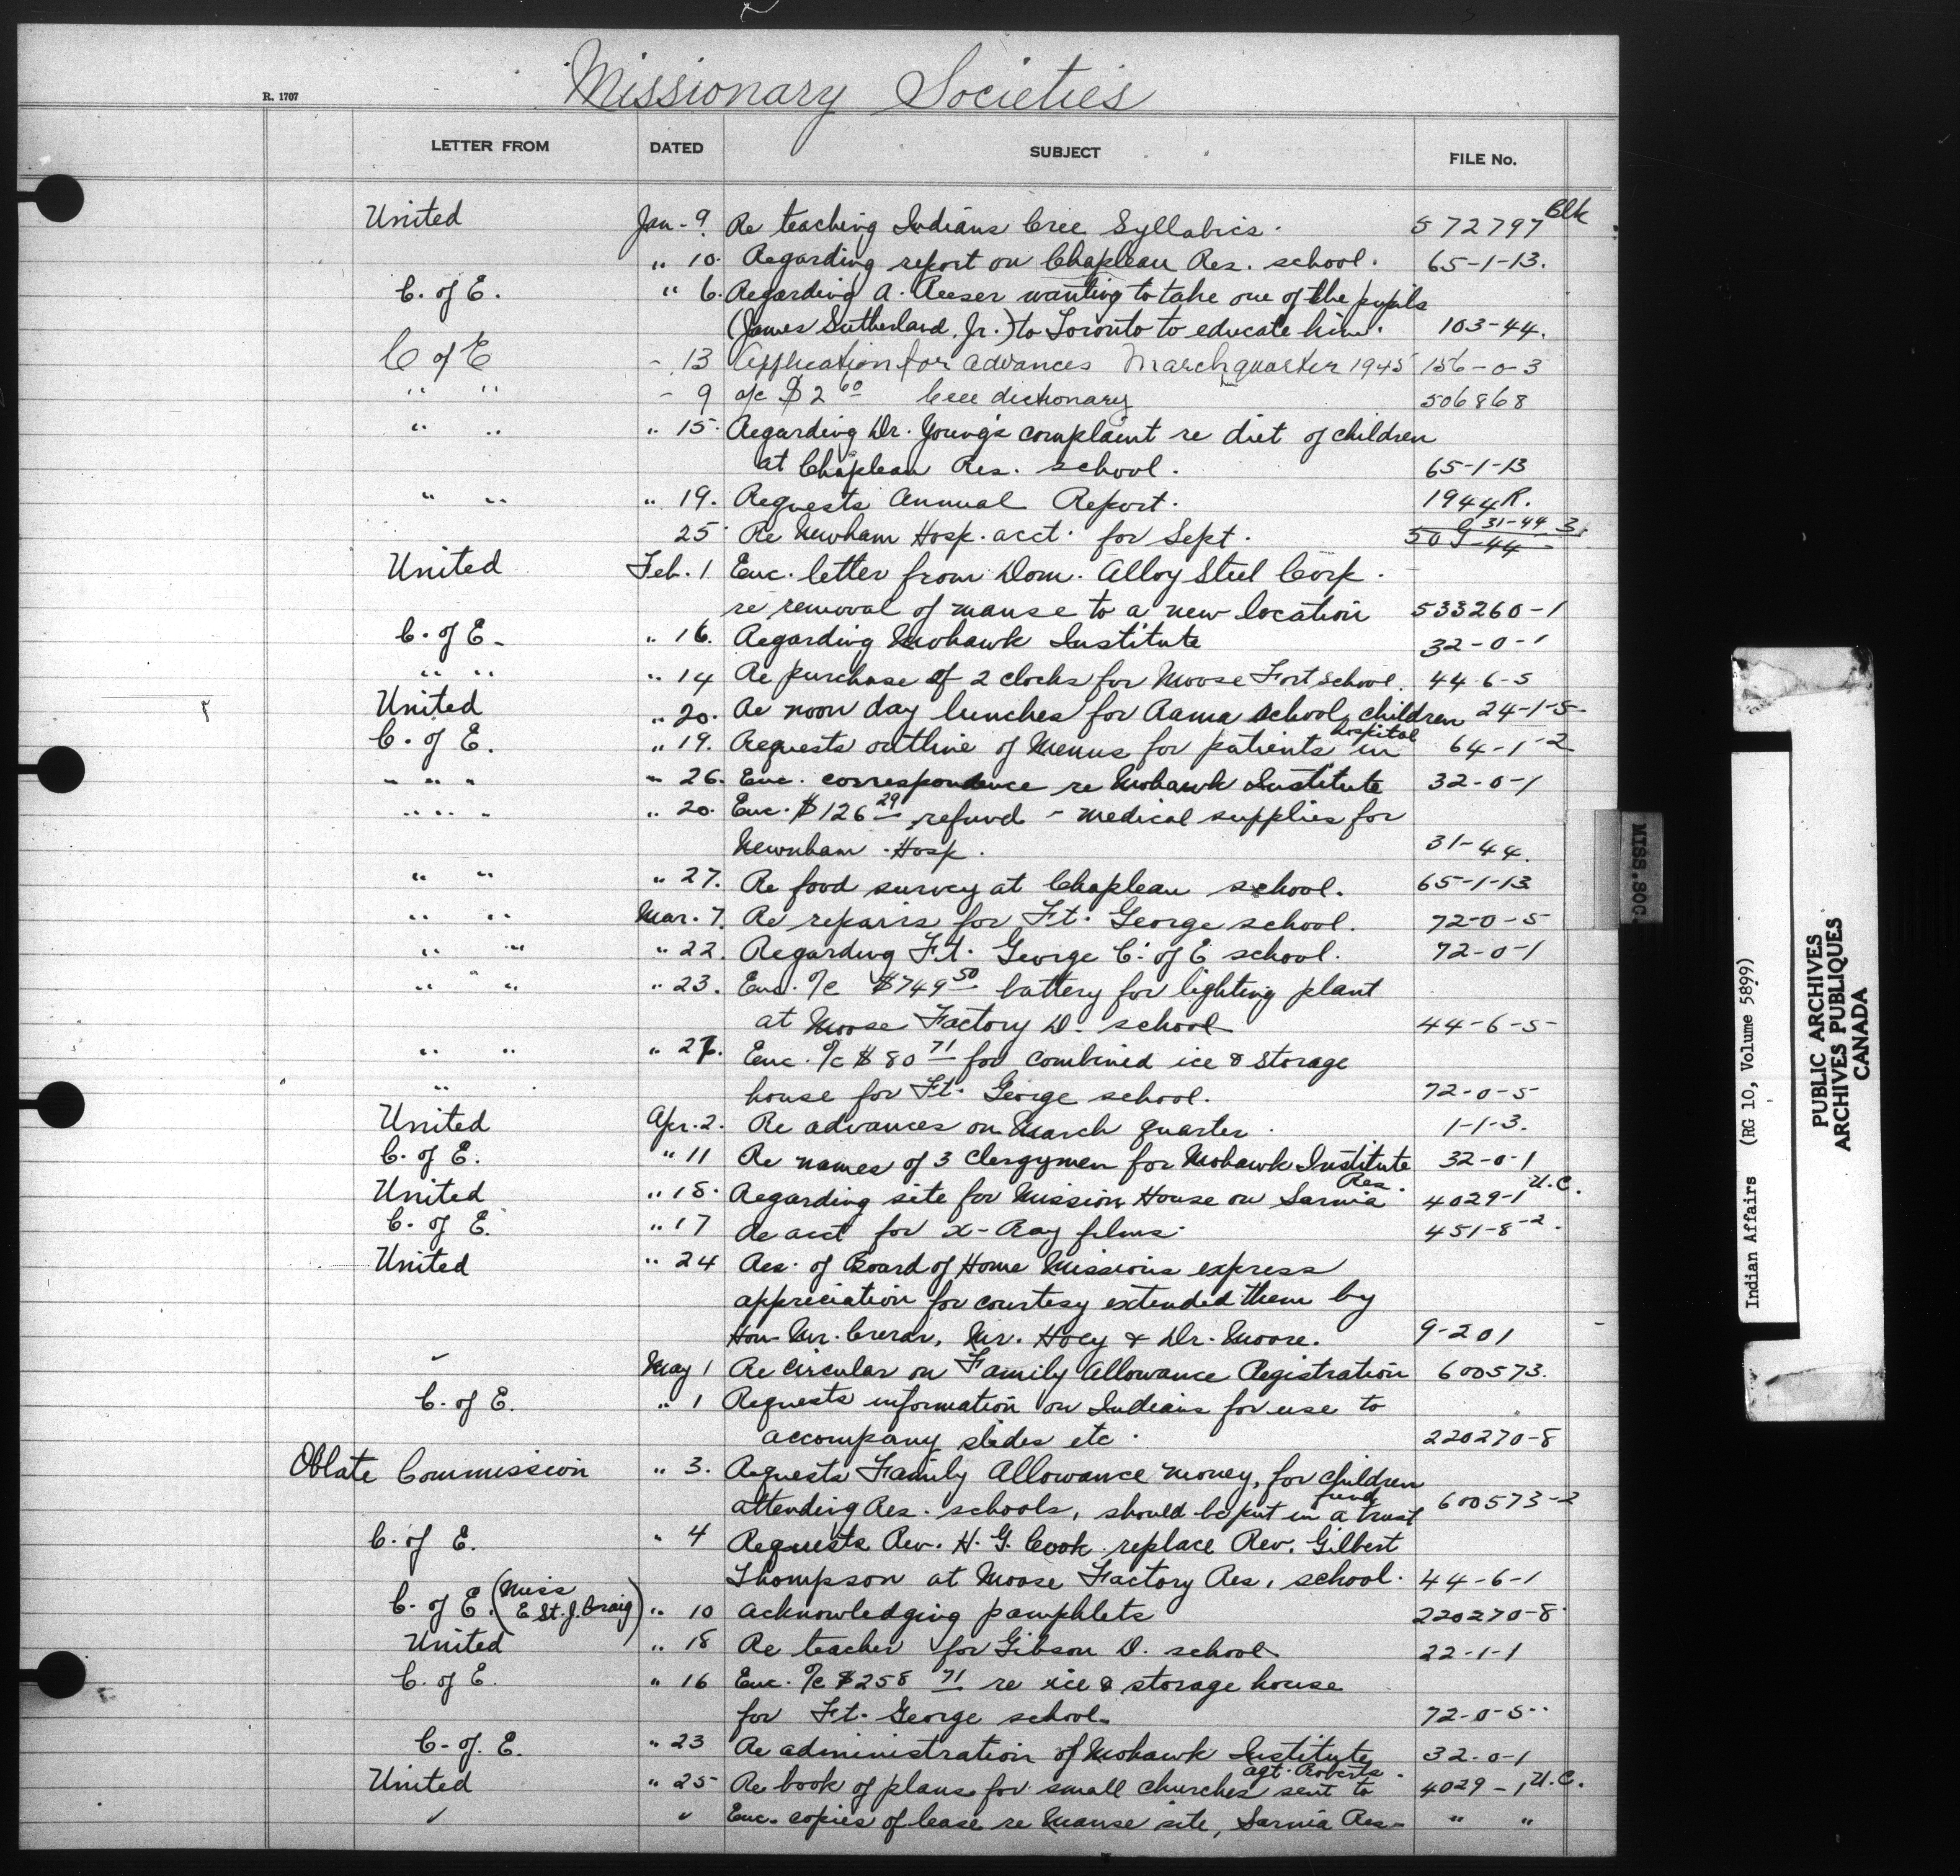 Missionary Societies
R. 1707
LETTER FROM DATED SUBJECT FILE No.
United Jan. 9. Re teaching Indians Cree Syllabics. 572797 Blk
" 10. Regarding report on Chapleau Res. school. 65-1-13.
C. of E. " 6. Regarding A. Reeser wanting to take one of the pupils
(James Sutherland, Jr.) to Toronto to educate him. 103-44.
C of E - 13 Application for advances March quarter 1945 156-0-3
" " - 9 o/c $2 60 Cree dictionary 506868
" " " 15. Regarding Dr. Young's complaint re diet of children
at Chapleau Res. school. 65-1-13
" " " 19. Requests Annual Report. 1944R.
25 Re Newham Hosp. acct. for Sept. 31-44
United Feb. 1 Enc. letter from Dom. Alloy Steel Corp.
re removal of manse to a new location 533260-1
C. of E. " 16. Regarding Mohawk Institute 32-0-1
" " " 14 Re purchase of 2 clocks for Moose Fort school. 44-6-5
United " 20. Re noon day lunches for Rama school children 24-1-5
C. of E. " 19. Requests outline of Menus for patients in hospital 64-1-2
" " " " 26. Enc. correspondence re Mohawk Institute 32-0-1
" " " " 20. Enc. $126 29 refund - medical supplies for
Newnham Hosp. 31-44.
" " " 27. Re food survey at Chapleau school. 65-1-13
" " Mar. 7. Re repairs for Ft. George school. 72-0-5
" " " 22. Regarding Ft. George C. of E school. 72-0-1
" " " 23. Enc. o/c $749 50 battery for lighting plant
at Moose Factory D. school 44-6-5
" " " Enc. o/c $80 71 for combined ice & storage
" house for Ft. George school. 72-0-5
United Apr. 2. Re advances on March quarter. 1-1-3.
C. of E. " 11 Re names of 3 clergymen for Mohawk Institute 32-0-1
United " 18. Regarding site for Mission House on Sarnia Res. 4029-1 U.C.
C. of E. " 17 Re acct for X-Ray films. 451-8-2.
United " 24 Res. of Board of Home Missions express
appreciation for courtesy extended them by
Hon. Mr. Crerar, Mr. Hoey & Dr. Moore. 9-201
" May 1 Re circular on Family Allowance Registration 600573.
C. of E. " 1 Requests information on Indians for use to
accompany slides etc. 220270-8
Oblate Commission " 3. Requests Family Allowance money, for children
attending Res. schools, should be put in a trust fund 600573-2
C. of E. " 4 Requests Rev. H. G. Cook replace Rev. Gilbert
Thompson at Moose Factory Res. school. 44-6-1
C. of E. (Miss E St. J. Craig) " 10 Acknowledging pamphlets 220270-8
United " 18 Re teacher for Gibson D. school 22-1-1
C. of E. " 16 Enc. o/c $258 71 re ice & storage house
for Ft. George school. 72-0-5
C. of E. " 23 Re administration of Mohawk Institute 32-0-1
United " 25 Re book of plans for small churches sent to agt. Roberts. 4029-1 U.C.
" " Enc. copies of lease re Manse site, Sarnia Res. " "
MISS. SOC.
Indian Affairs (RG 10, Volume 5899)
PUBLIC ARCHIVES
ARCHIVES PUBLIQUES
CANADA